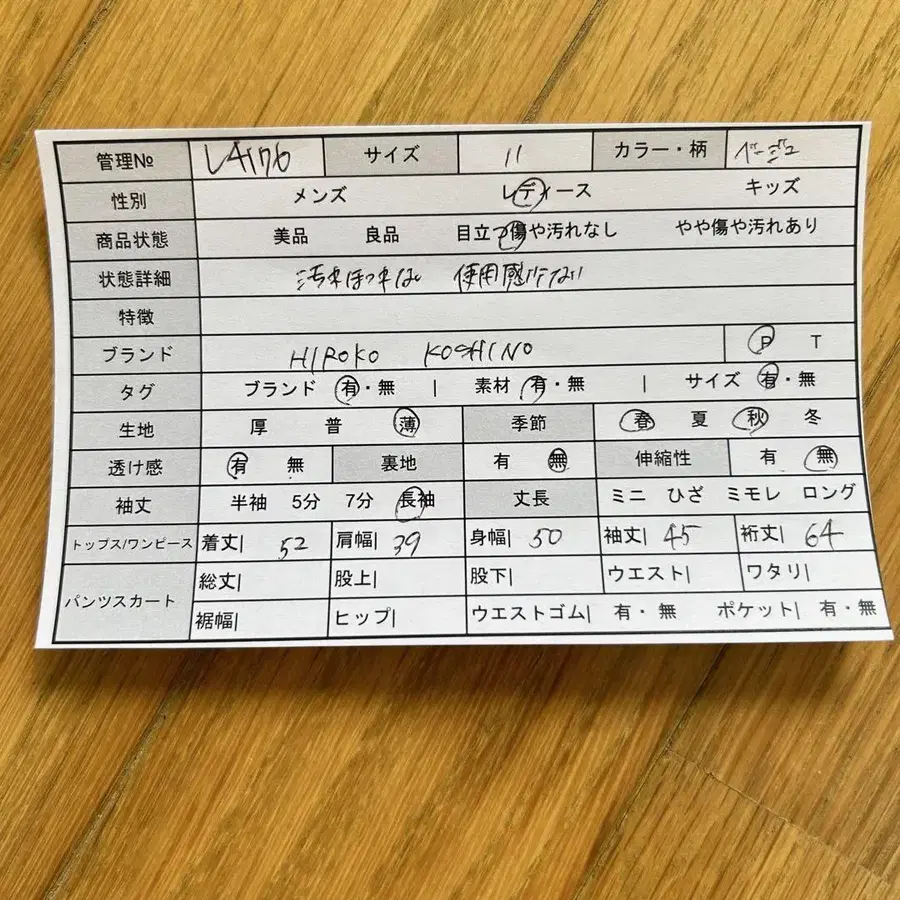 管理№ LA176 サイズ 11 カラー・柄 ベージュ
性別 メンズ レディース キッズ
商品状態 美品 良品 目立つ傷や汚れなし やや傷や汚れあり
状態詳細 使用感
特徴
ブランド HIROKO KOSHINO P T
タグ ブランド 有・無 | 素材 有・無 | サイズ 有・無
生地 厚 普 薄 季節 春 夏 秋 冬
透け感 有 無 裏地 有 無 伸縮性 有 無
袖丈 半袖 5分 7分 長袖 丈長 ミニ ひざ ミモレ ロング
トップス/ワンピース 着丈| 52 肩幅| 39 身幅| 50 袖丈| 45 裄丈| 64
パンツスカート 総丈| 股上| 股下| ウエスト| ワタリ|
裾幅| ヒップ| ウエストゴム| 有・無 ポケット| 有・無